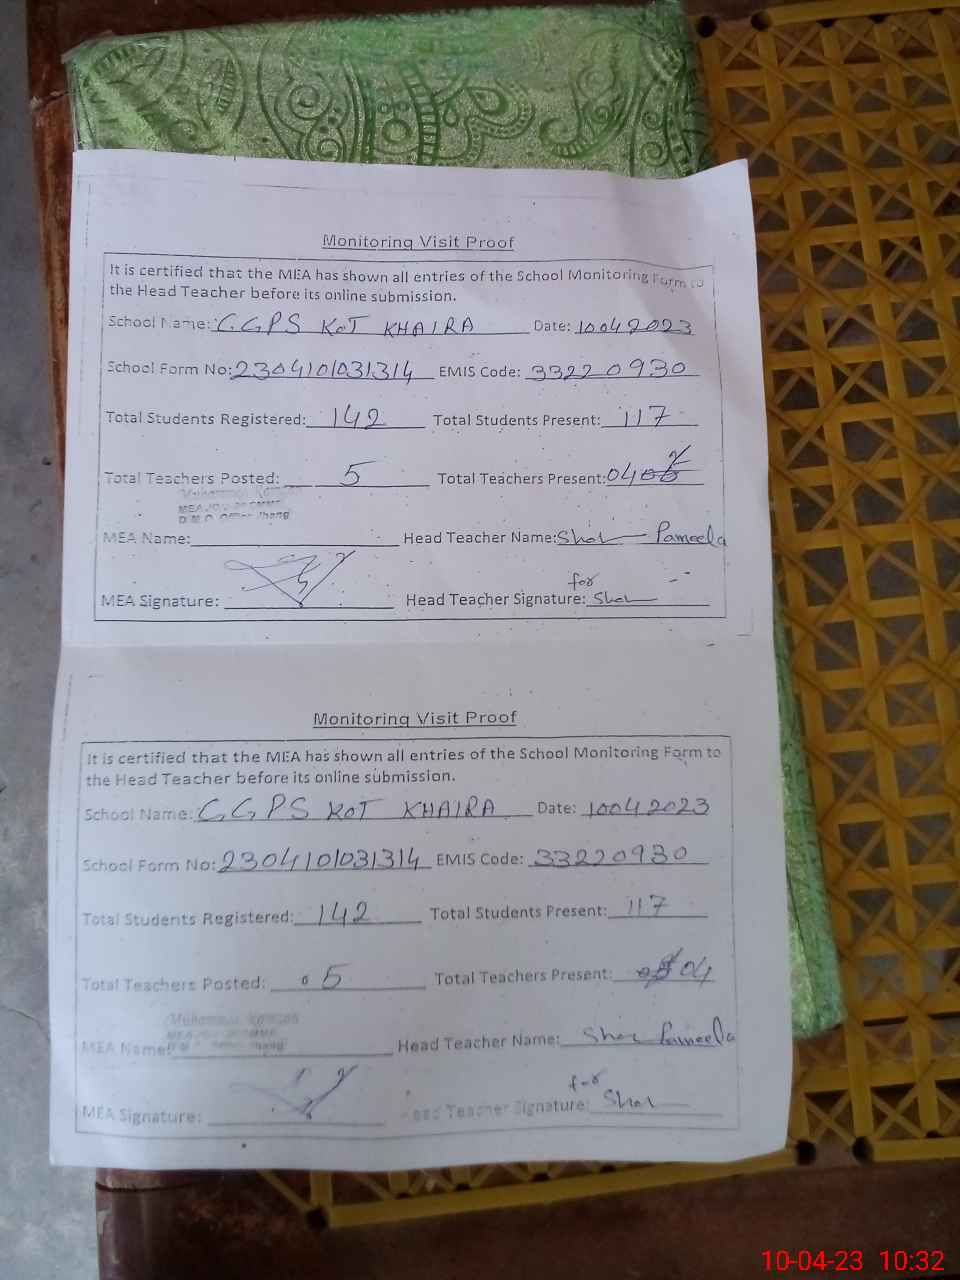 Monitoring Visit Proof
It is certified that the MEA has shown all entries of the School Monitoring Form to
the Head Teacher before its online submission.
School Name: G.GPS KOT KHAIRA Date: 10042023
School Form No: 2304101031314 EMIS Code: 33220930
Total Students Registered: 142 Total Students Present: 117
Total Teachers Posted: 5 Total Teachers Present: 04
MEA Name: Head Teacher Name: Pameela
for
MEA Signature: Head Teacher Signature:
Monitoring Visit Proof
It is certified that the MEA has shown all entries of the School Monitoring Form to
the Head Teacher before its online submission.
School Name: GGPS KOT KHAIRA Date: 10042023
School Form No: 2304101031314 EMIS Code: 33220930
Total Students Registered: 142 Total Students Present: 117
Total Teachers Posted: 05 Total Teachers Present: 04
MEA Name: Head Teacher Name: Pameela
for
MEA Signature: Head Teacher Signature:
10-04-23 10:32